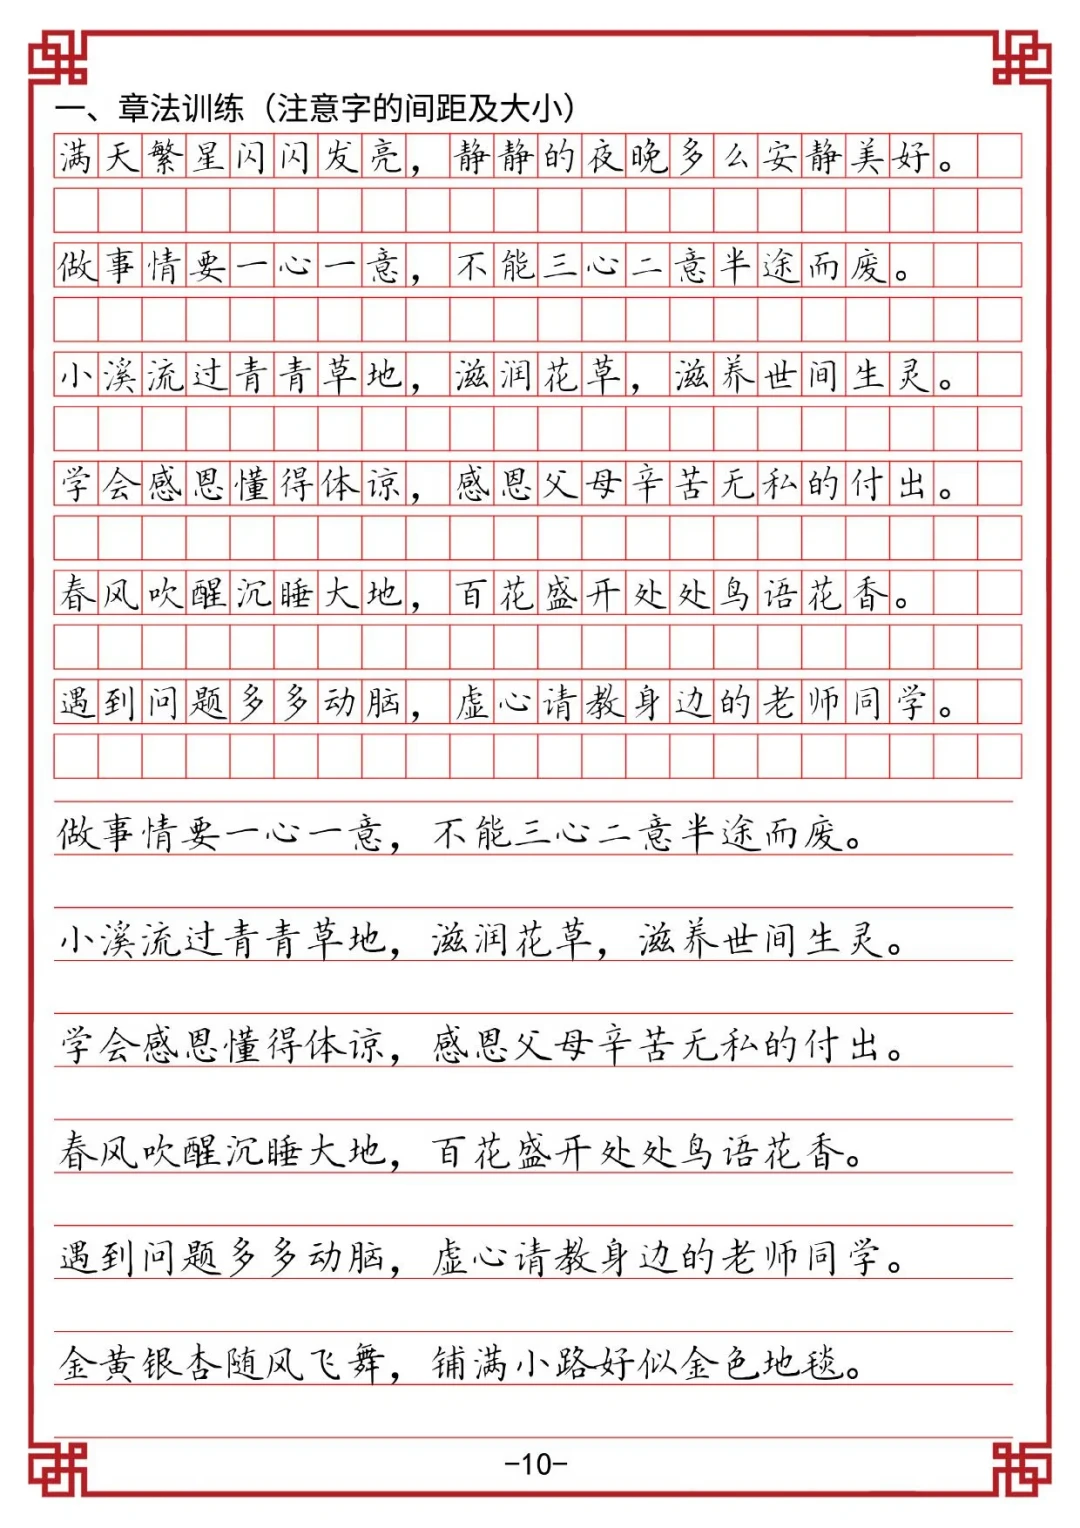 一、章法训练（注意字的间距及大小）
满天繁星闪闪发亮，静静的夜晚多么安静美好。
做事情要一心一意，不能三心二意半途而废。
小溪流过青青草地，滋润花草，滋养世间生灵。
学会感恩懂得体谅，感恩父母辛苦无私的付出。
春风吹醒沉睡大地，百花盛开处处鸟语花香。
遇到问题多多动脑，虚心请教身边的老师同学。
做事情要一心一意，不能三心二意半途而废。
小溪流过青青草地，滋润花草，滋养世间生灵。
学会感恩懂得体谅，感恩父母辛苦无私的付出。
春风吹醒沉睡大地，百花盛开处处鸟语花香。
遇到问题多多动脑，虚心请教身边的老师同学。
金黄银杏随风飞舞，铺满小路好似金色地毯。
-10-